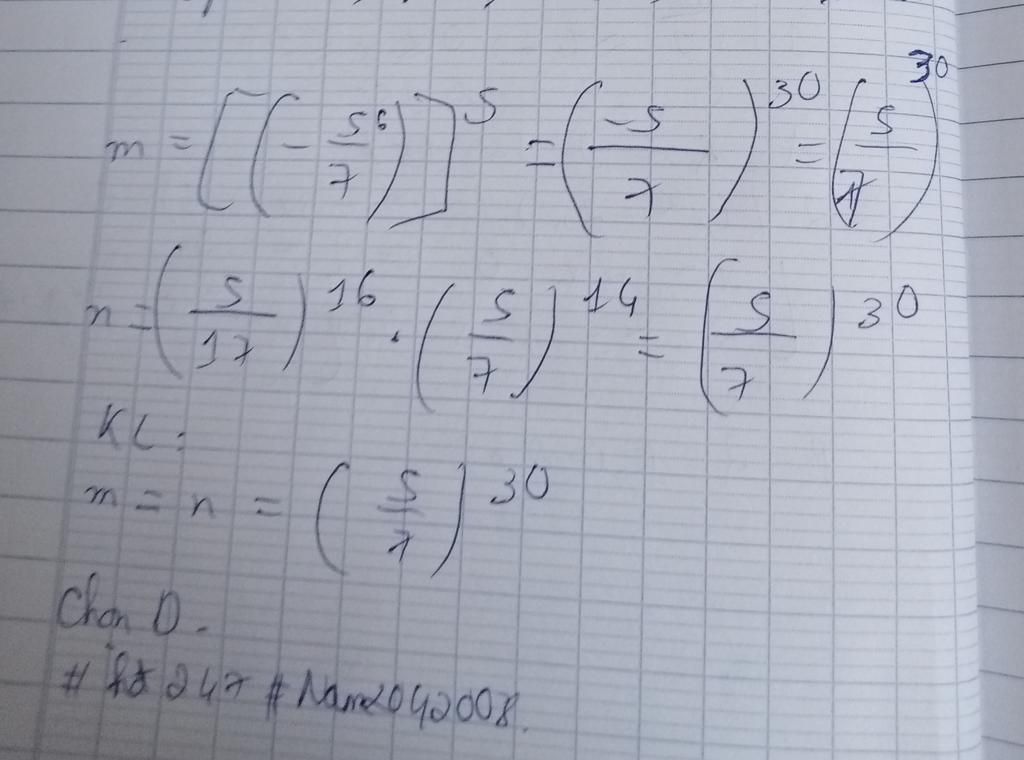 m = [(-5⁶/7)]⁵ = (-5/7)³⁰ = (5/7)³⁰
n = (5/17)¹⁶ . (5/7)¹⁴ = (5/7)³⁰
KL:
m = n = (5/7)³⁰
Chọn D.
# 247 # Nam2042008.